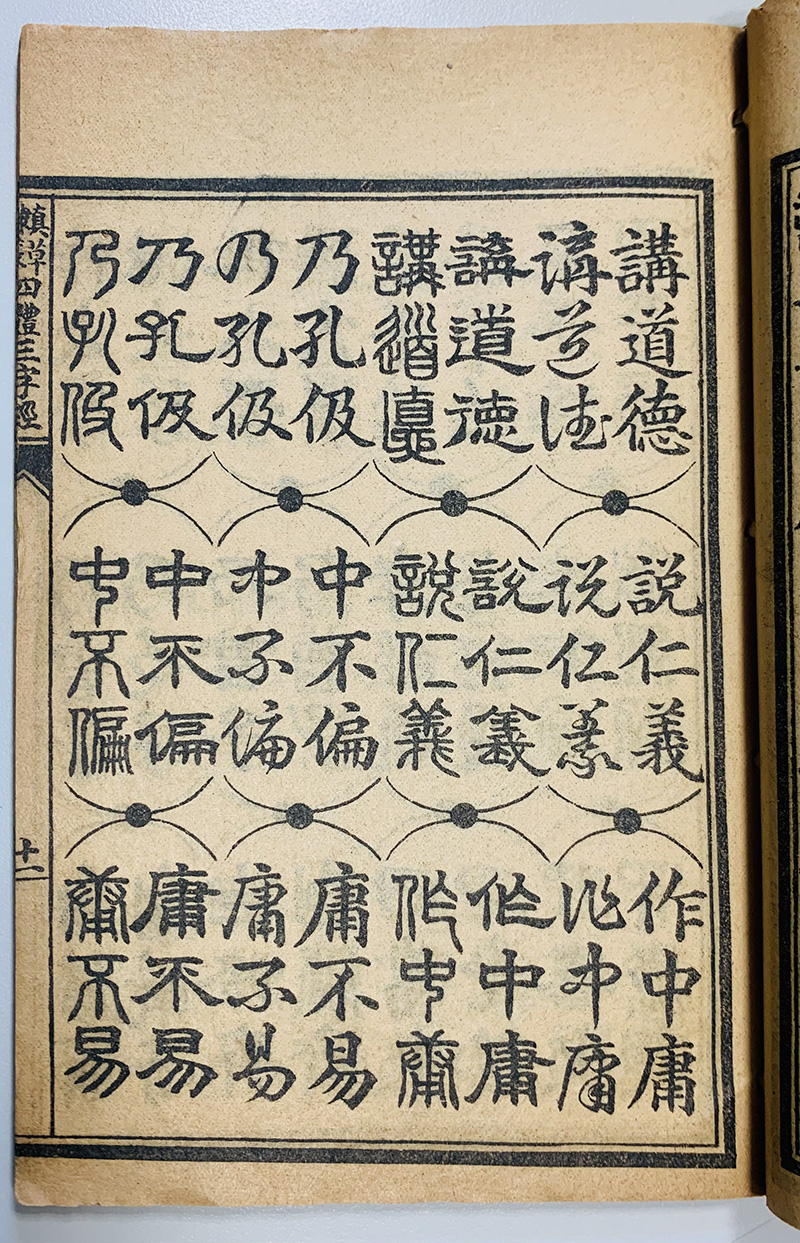 講道德 說仁義 作中庸
講道德 說仁義 作中庸
講道德 說仁義 作中庸
講道德 說仁義 作中庸
乃孔伋 中不偏 庸不易
乃孔伋 中不偏 庸不易
乃孔伋 中不偏 庸不易
乃孔伋 中不偏 庸不易
草四體三字經
十一